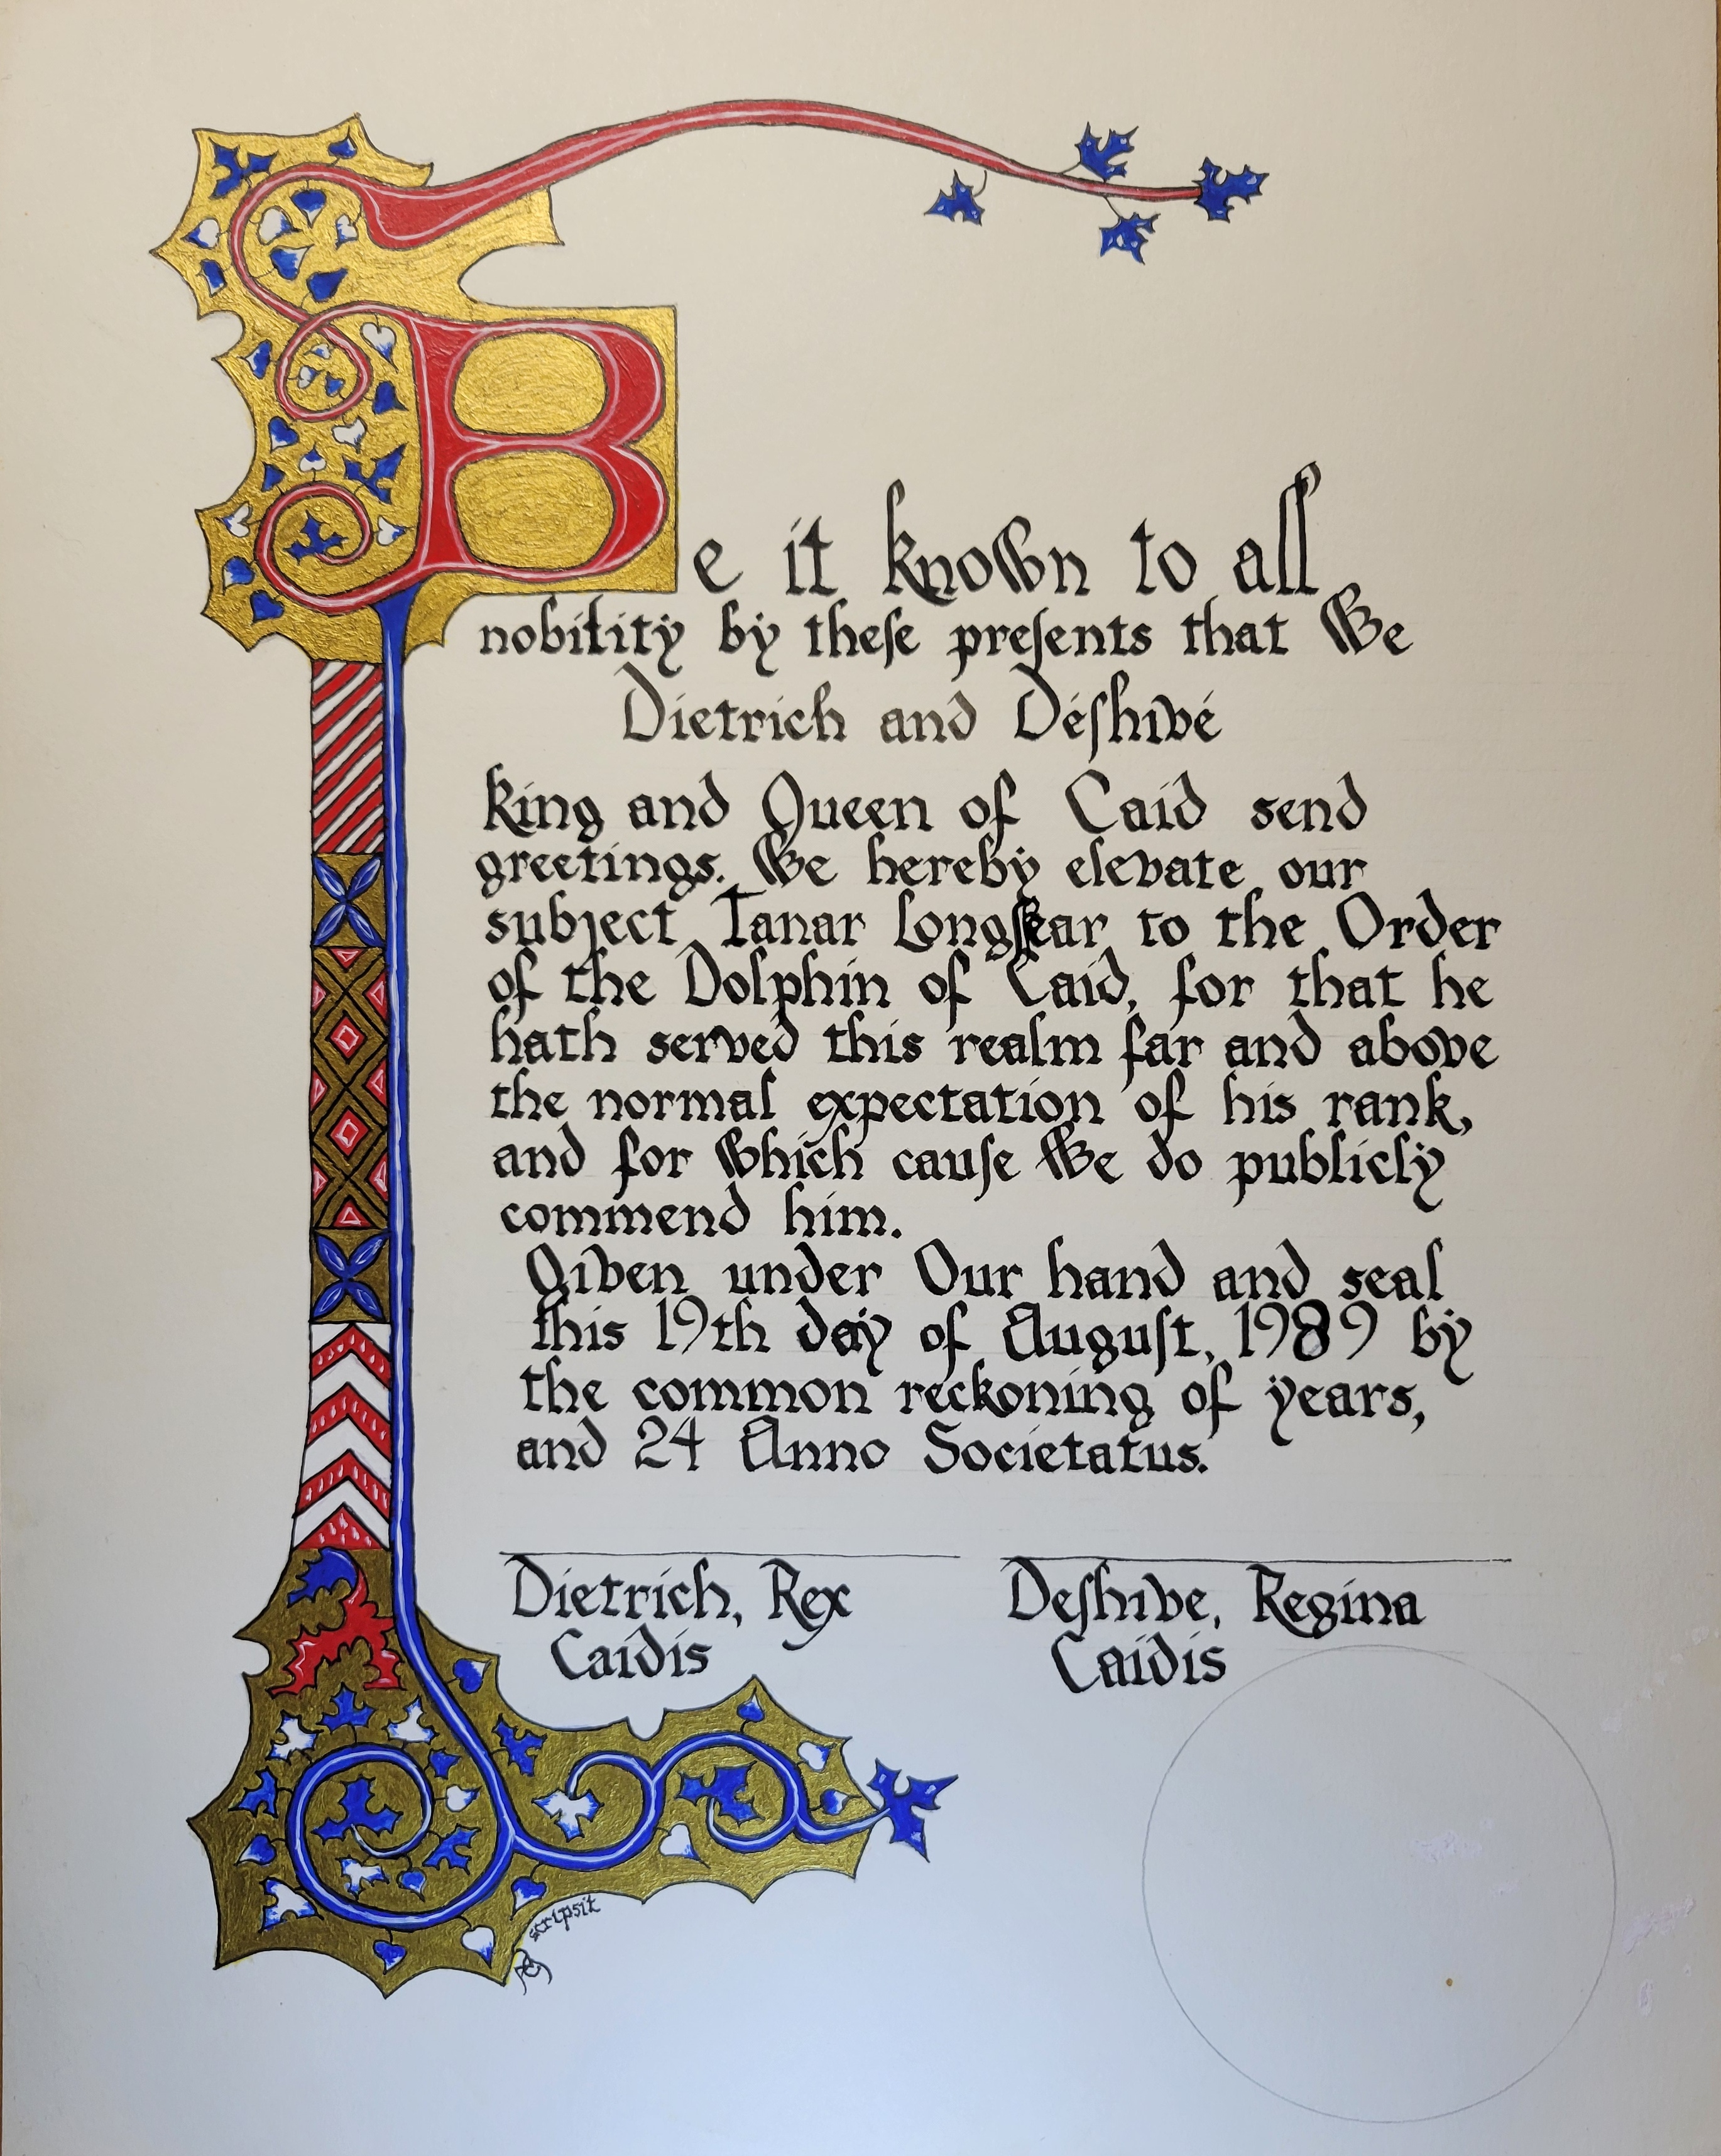 Be it known to all
nobility by these presents that We
Dietrich and Déshivé
King and Queen of Caid send
greetings. We hereby elevate our
subject Tanar Longfear to the Order
of the Dolphin of Caid, for that he
hath served this realm far and above
the normal expectation of his rank,
and for which cause We do publicly
commend him.
Given under Our hand and seal
this 19th day of August, 1989 by
the common reckoning of years,
and 24 Anno Societatus.
Dietrich, Rex
Caidis
Deshive, Regina
Caidis
scripsit